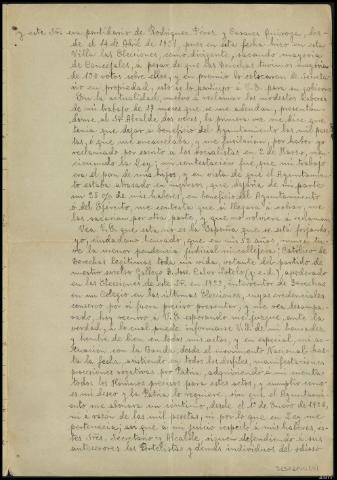 y este Sr. era partidario de Rodriguez Perez y Casares Quiroga, des-
de el 14 de Abril de 1931, pues en esta fecha hizo en esta
Villa las Elecciones, como dirigente, sacando mayoria
de Concejales, a pesar de que las Derechas tuvimos mayoria
de 150 votos sobre ellos, y en premio lo colocaron de Secreta-
rio en propiedad,
En la actualidad, vuelvo a reclamar los modestos haberes
de mi trabajo de 17 meses que se me adeudan, presentan-
dome al Sr. Alcalde, dos veces, la primera vez me dice que
tenia que dejar a beneficio del Ayuntamiento las mil pese-
tas, o que me encarcelaba, y me fusilarian, por haber yo
reclamado
la Ley; mi contestación fué, que mi trabajo
era el pan de mis hijos, y en vista de que el Ayuntamien-
to estaba atrasado en ingresos, que dejaria de mi parte
un 25 0% de mis haberes, en beneficio del Ayuntamiento
o del Ejército, me contesta que si llegaba a cobrar, me
las sacarian por otra parte, y que no volviera a reclamar.
Vea V.E. que esta no es la España que se está forjando,
yo, ciudadano honrado, que en mis 52 años, nunca tu-
ve la menor pendencia judicial ni callejera. Católico de
Derechas legítimas toda mi vida, votante del partido de
nuestro excelso Gallego D. José Calvo Sotelo (q.e.d.), apoderado
en las Elecciones de este Sr. en 1933, interventor de Derechas
en un Colegio en las últimas Elecciones, cuyas credenciales
conservo por si fuera preciso presentar, y me vea desampa-
rado, hoy recurro a V.E. esperando me juzgue, ante la
verdad, a lo cual puede informarse V.E. de mi honradez
y hombre de bien en todos mis actos, y en especial, mi ac-
tuación con la Banda, desde el movimiento Nacional has-
ta la fecha, asistiendo en todos los desfiles, manifestaciones
procesiones rogativas por Patria, adquiriendo a mi cuenta
todos los Himnos precisos para estos actos, y cumplir como
es mi deseo y la Patria lo requiere, sin que el Ayuntamien-
to me abonara un céntimo, desde el 1º de Enero de 1936,
ni a razón de las mil pesetas, ni por lo que en Ley me
pertenecia; asi que a mi juicio respecto a mis haberes, es-
tos Srs. Secretario y Alcalde, siguen defendiendo a sus
antecesores los Portelistas y demás individuos del odioso